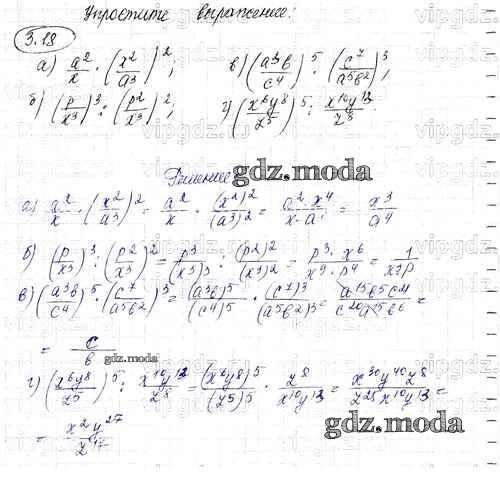 Упростите выражение:
3.18
а) a²/x · (x²/a³)²; в) (a³b/c⁴)⁵ · (c⁷/a⁵b²)³;
б) (p/x³)³ : (p²/x³)²; г) (x⁶y⁸/z⁵)⁵ : x¹⁰y¹³/z⁸
Решение
gdz.moda
а) a²/x · (x²/a³)² = a²/x · (x²)²/(a³)² = a²·x⁴/x·a⁶ = x³/a⁴
б) (p/x³)³ : (p²/x³)² = p³/(x³)³ : (p²)²/(x³)² = p³·x⁶/x⁹·p⁴ = 1/x³p
в) (a³b/c⁴)⁵ · (c⁷/a⁵b²)³ = (a³b)⁵/(c⁴)⁵ · (c⁷)³/(a⁵b²)³ = a¹⁵b⁵c²¹/c²⁰a¹⁵b⁶ =
= c/b
gdz.moda
г) (x⁶y⁸/z⁵)⁵ : x¹⁰y¹³/z⁸ = (x⁶y⁸)⁵/(z⁵)⁵ · z⁸/x¹⁰y¹³ = x³⁰y⁴⁰z⁸/z²⁵x¹⁰y¹³ =
= x²y²⁷/z¹⁷
gdz.moda